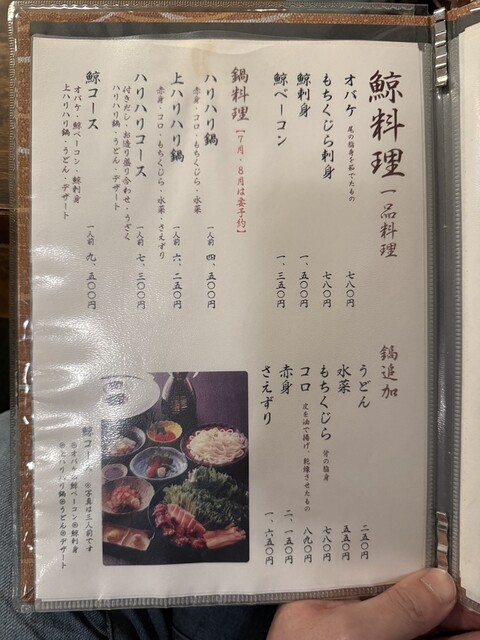 鯨料理 一品料理
オバケ 尾の脂身を茹でたもの 七八〇円
もちくじら刺身 七八〇円
鯨刺身 一、五〇〇円
鯨ベーコン 一、三五〇円
鍋料理【7月・8月は要予約】
ハリハリ鍋 一人前 四、五〇〇円
赤身・コロ・もちくじら・水菜
上ハリハリ鍋 一人前 六、二五〇円
赤身・コロ・もちくじら・水菜・さえずり
ハリハリコース 一人前 七、三〇〇円
付きだし・お造り盛り合わせ・うざく
ハリハリ鍋・うどん・デザート
鯨コース 一人前 九、五〇〇円
オバケ・鯨ベーコン・鯨刺身
上ハリハリ鍋・うどん・デザート
鍋追加
うどん 二五〇円
水菜 五五〇円
もちくじら 背の脂身 七八〇円
コロ 皮を油で揚げ、乾燥させたもの 八九〇円
赤身 二、一五〇円
さえずり 一、六五〇円
鯨コース ※写真は三人前です
※オバケ※鯨ベーコン※鯨刺身
※上ハリハリ鍋※うどん※デザート